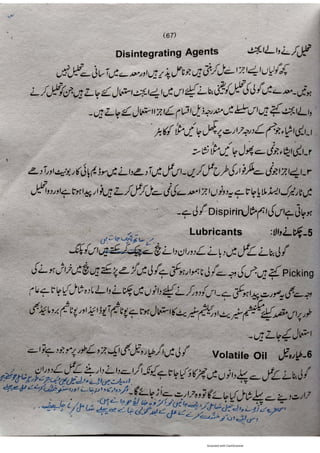 (67)
Disintegrating Agents تحلیل کرنے والے ایجنٹ
کچھ گولیاں ایسے اجزا سے مل کر بنتی ہیں جو ناحل پذیر ہیں اور معدے میں آسانی سے تحلیل نہیں
ہوتیں۔ معدے میں گولی کی تحلیل کو یقینی بنانے کیلئے اس میں ایسے ایجنٹ استعمال کئے جاتے ہیں جن کو تحلیل کرنے
والے ایجنٹ کہتے ہیں اس سلسلے میں مندرجہ ذیل اقسام کے اجزا استعمال کئے جاتے ہیں۔
۱۔ ایسی اشیاء جو جسم کے درجہ حرارت پر پگھل جائیں مثلاً کوکا بٹر
۲۔ ایسی اشیاء جو نمی سے پھول جائیں مثلاً نشاستہ
۳۔ ایسے اجزا جو نمی سے مل کر فوار کی طرح عمل کریں۔ اس عمل میں آدھے دانے میں سوڈیم بائی کاربونیٹ اور آدھے
میں ٹارٹیرک ایسڈ ملایا جاتا ہے یہ دونوں اجزا معدے کی نمی سے مل کر عمل کرتے ہیں فوار پیدا ہوتا ہے اور دوا تحلیل
ہو جاتی ہے اس کی اہم مثال Dispirin گولی ہے۔
5۔ چکنانے والا: Lubricants
گولی بنانے کے عمل میں دبانے کے دوران دانے پنچ سے چپک کر رہتے ہیں اس کو پلنگ
Picking کہتے ہیں جس کی وجہ سے گولی ناہموار ہو سکتی ہے گولی میں گڑھے پڑ سکتے ہیں پنچ میں خراش ہونے کی
وجہ سے بھی یہ صورت پیدا ہو سکتی ہے۔ اس کو دور کرنے کیلئے دانوں میں چکنانے والے مادہ شامل کیا جاتا ہے عام
طور پر اس مقصد کیلئے میگنیشیم سٹیریٹ اور کیلشیم سٹیریٹ کا استعمال ہوتا ہے پوٹاشیم آیوڈائیڈ اور پوٹاشیم برومائیڈ بھی
استعمال کیے جاتے ہیں۔
6۔ طیارہ تیل Volatile Oil گولی میں اگر طیارہ تیل بھی ایک جزو کے طور پر موجود ہے تو اسے
گولی بنانے کے عمل سے پہلے دانوں میں چھڑکاؤ کیا جاتا ہے کیونکہ اگر اسے دانے بنانے کے عمل کے دوران
دانے بننے سے پہلے شامل کیا جائے گا تو وہ حرارت سے اڑ جائے گا۔
Scanned with CamScanner